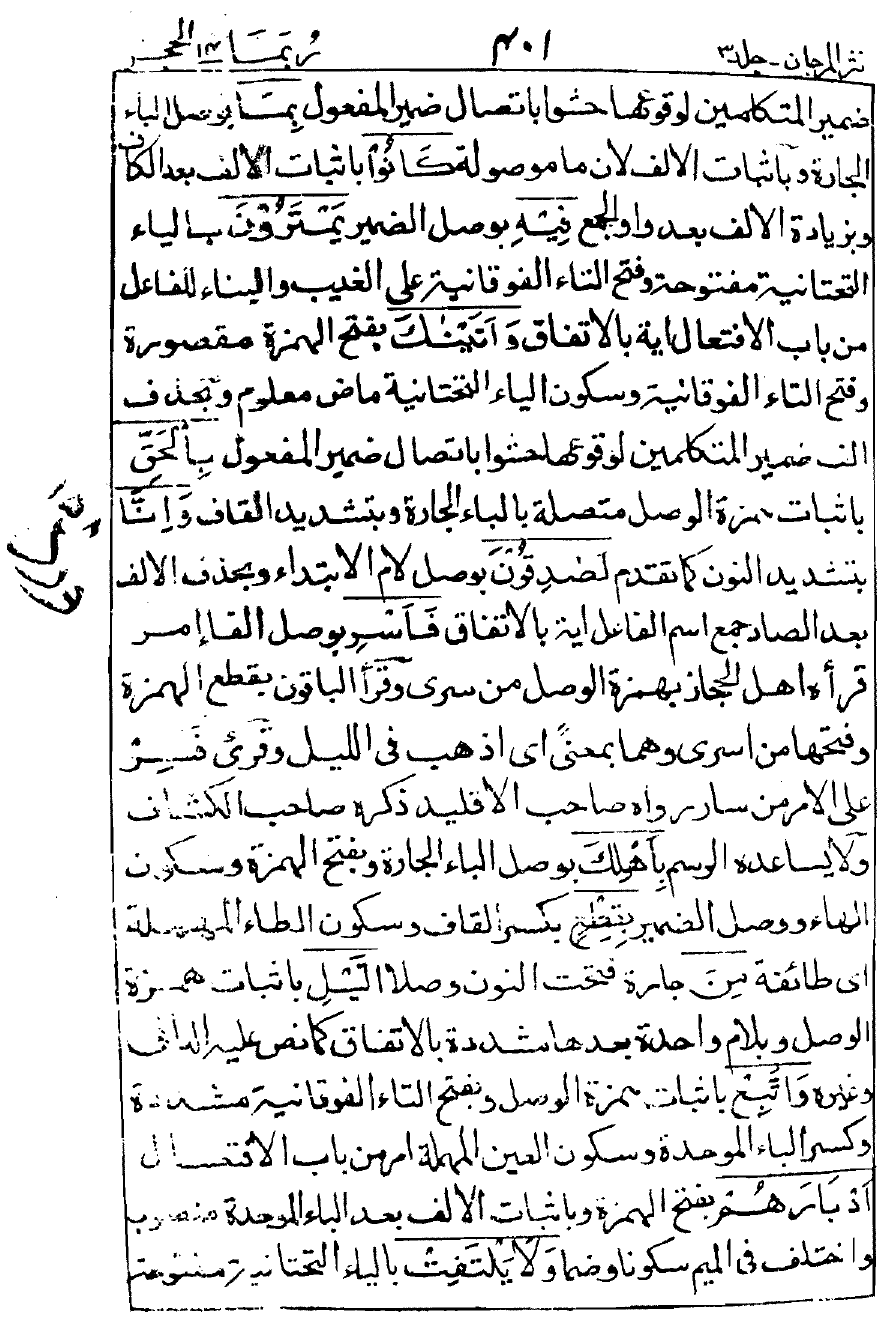 نثر المرجان - جلد ٣ ٤٠١ رُبَمَا ١٤ الحجر
ضمير المتكلمين لوقوعها حشوا باتصال ضمير المفعول بِمَا بوصل الباء
الجارة و باثبات الالف لان ما موصولة كَانُوْا باثبات الالف بعد الكاف
و بزيادة الالف بعد واو الجمع فِيْهِ بوصل الضمير يَمْتَرُوْنَ بالياء
التحتانية مفتوحة وفتح التاء الفوقانية على الغيب والبناء للفاعل
من باب الافتعال اية بالاتفاق وَاَتَيْنٰكَ بفتح الهمزة مقصورة
وفتح التاء الفوقانية وسكون الياء التحتانية ماض معلوم وبحذف
الف ضمير المتكلمين لوقوعها حشوا باتصال ضمير المفعول بِالْحَقِّ
باثبات همزة الوصل متصلة بالباء الجارة وبتشديد القاف وَاِنَّا
بتشديد النون كما تقدم لَصٰدِقُوْنَ بوصل لام الابتداء وبحذف الالف
بعد الصاد جمع اسم الفاعل اية بالاتفاق فَاَسْرِ بوصل الفا امر
قرأه اهل الحجاز بهمزة الوصل من سرى وقرأ الباقون بقطع الهمزة
وفتحها من اسرى وهما بمعنًى اى اذهب فى الليل وقرئ فَسِرْ
على الامر من سار رواه صاحب الاقليد ذكره صاحب الكشاف
ولا يساعده الرسم بِاَهْلِكَ بوصل الباء الجارة وبفتح الهمزة وسكون
الهاء ووصل الضمير بِقِطْعٍ بكسر القاف وسكون الطاء المهملة
اى طائفة مِنَ جارة فتحت النون وصلا الَّيْلِ باثبات همزة
الوصل وبلام واحدة بعدها مشددة بالاتفاق كما نص عليه الدانى
وغيره وَاتَّبِعْ باثبات همزة الوصل وبفتح التاء الفوقانية مشددة
وكسر الباء الموحدة وسكون العين المهملة امر من باب الافتعال
اَدْبَارَهُمْ بفتح الهمزة وباثبات الالف بعد الباء الموحدة منصوب
واختلف فى الميم سكونا وضما وَلَا يَلْتَفِتْ بالياء التحتانية مفتوحة